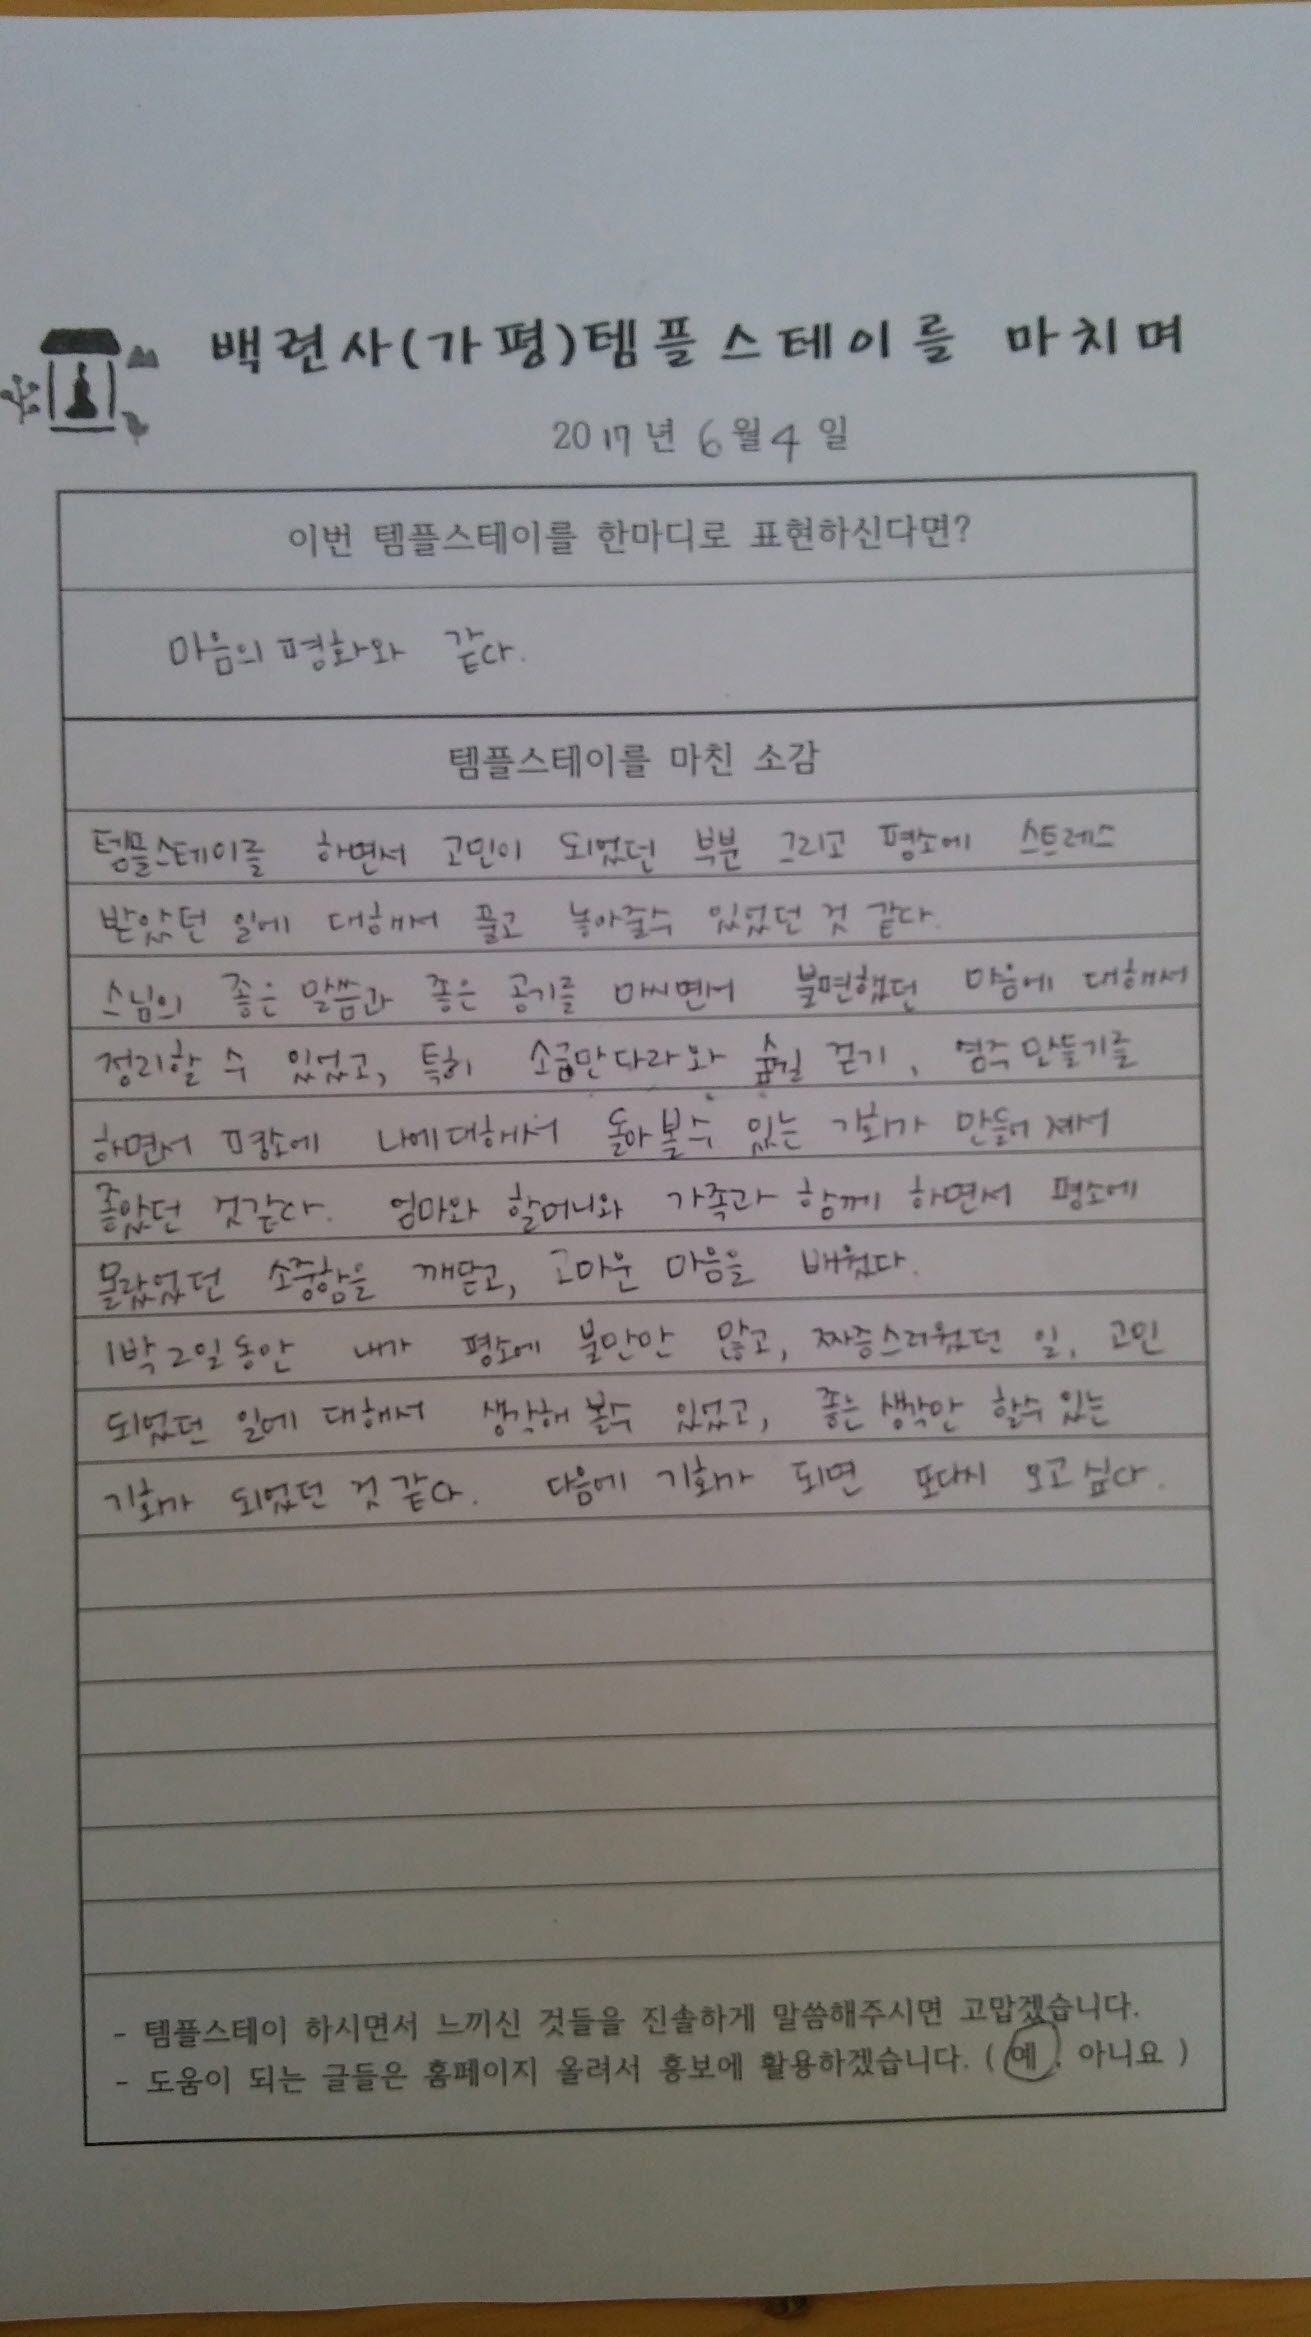 백련사(가평)템플스테이를 마치며
2017년 6월 4일
이번 템플스테이를 한마디로 표현하신다면?
마음의 평화와 같다.
템플스테이를 마친 소감
템플스테이를 하면서 고민이 되었던 부분 그리고 평소에 스트레스
받았던 일에 대해서 풀고 놓아줄수 있었던 것 같다.
스님의 좋은 말씀과 좋은 공기를 마시면서 불편했던 마음에 대해서
정리할 수 있었고, 특히 소금만다라와 숲길 걷기, 염주만들기를
하면서 평소에 나에대해서 돌아볼수 있는 기회가 만들어져서
좋았던 것같다. 엄마와 할머니와 가족과 함께 하면서 평소에
몰랐었던 소중함을 깨닫고, 고마운 마음을 배웠다.
1박 2일동안 내가 평소에 불만만 많고, 짜증스러웠던 일, 고민
되었던 일에 대해서 생각해 볼수 있었고, 좋은 생각만 할수 있는
기회가 되었던 것 같다. 다음에 기회가 되면 또다시 오고싶다.
- 템플스테이 하시면서 느끼신 것들을 진솔하게 말씀해주시면 고맙겠습니다.
- 도움이 되는 글들은 홈페이지 올려서 홍보에 활용하겠습니다. ( 예 . 아니요 )